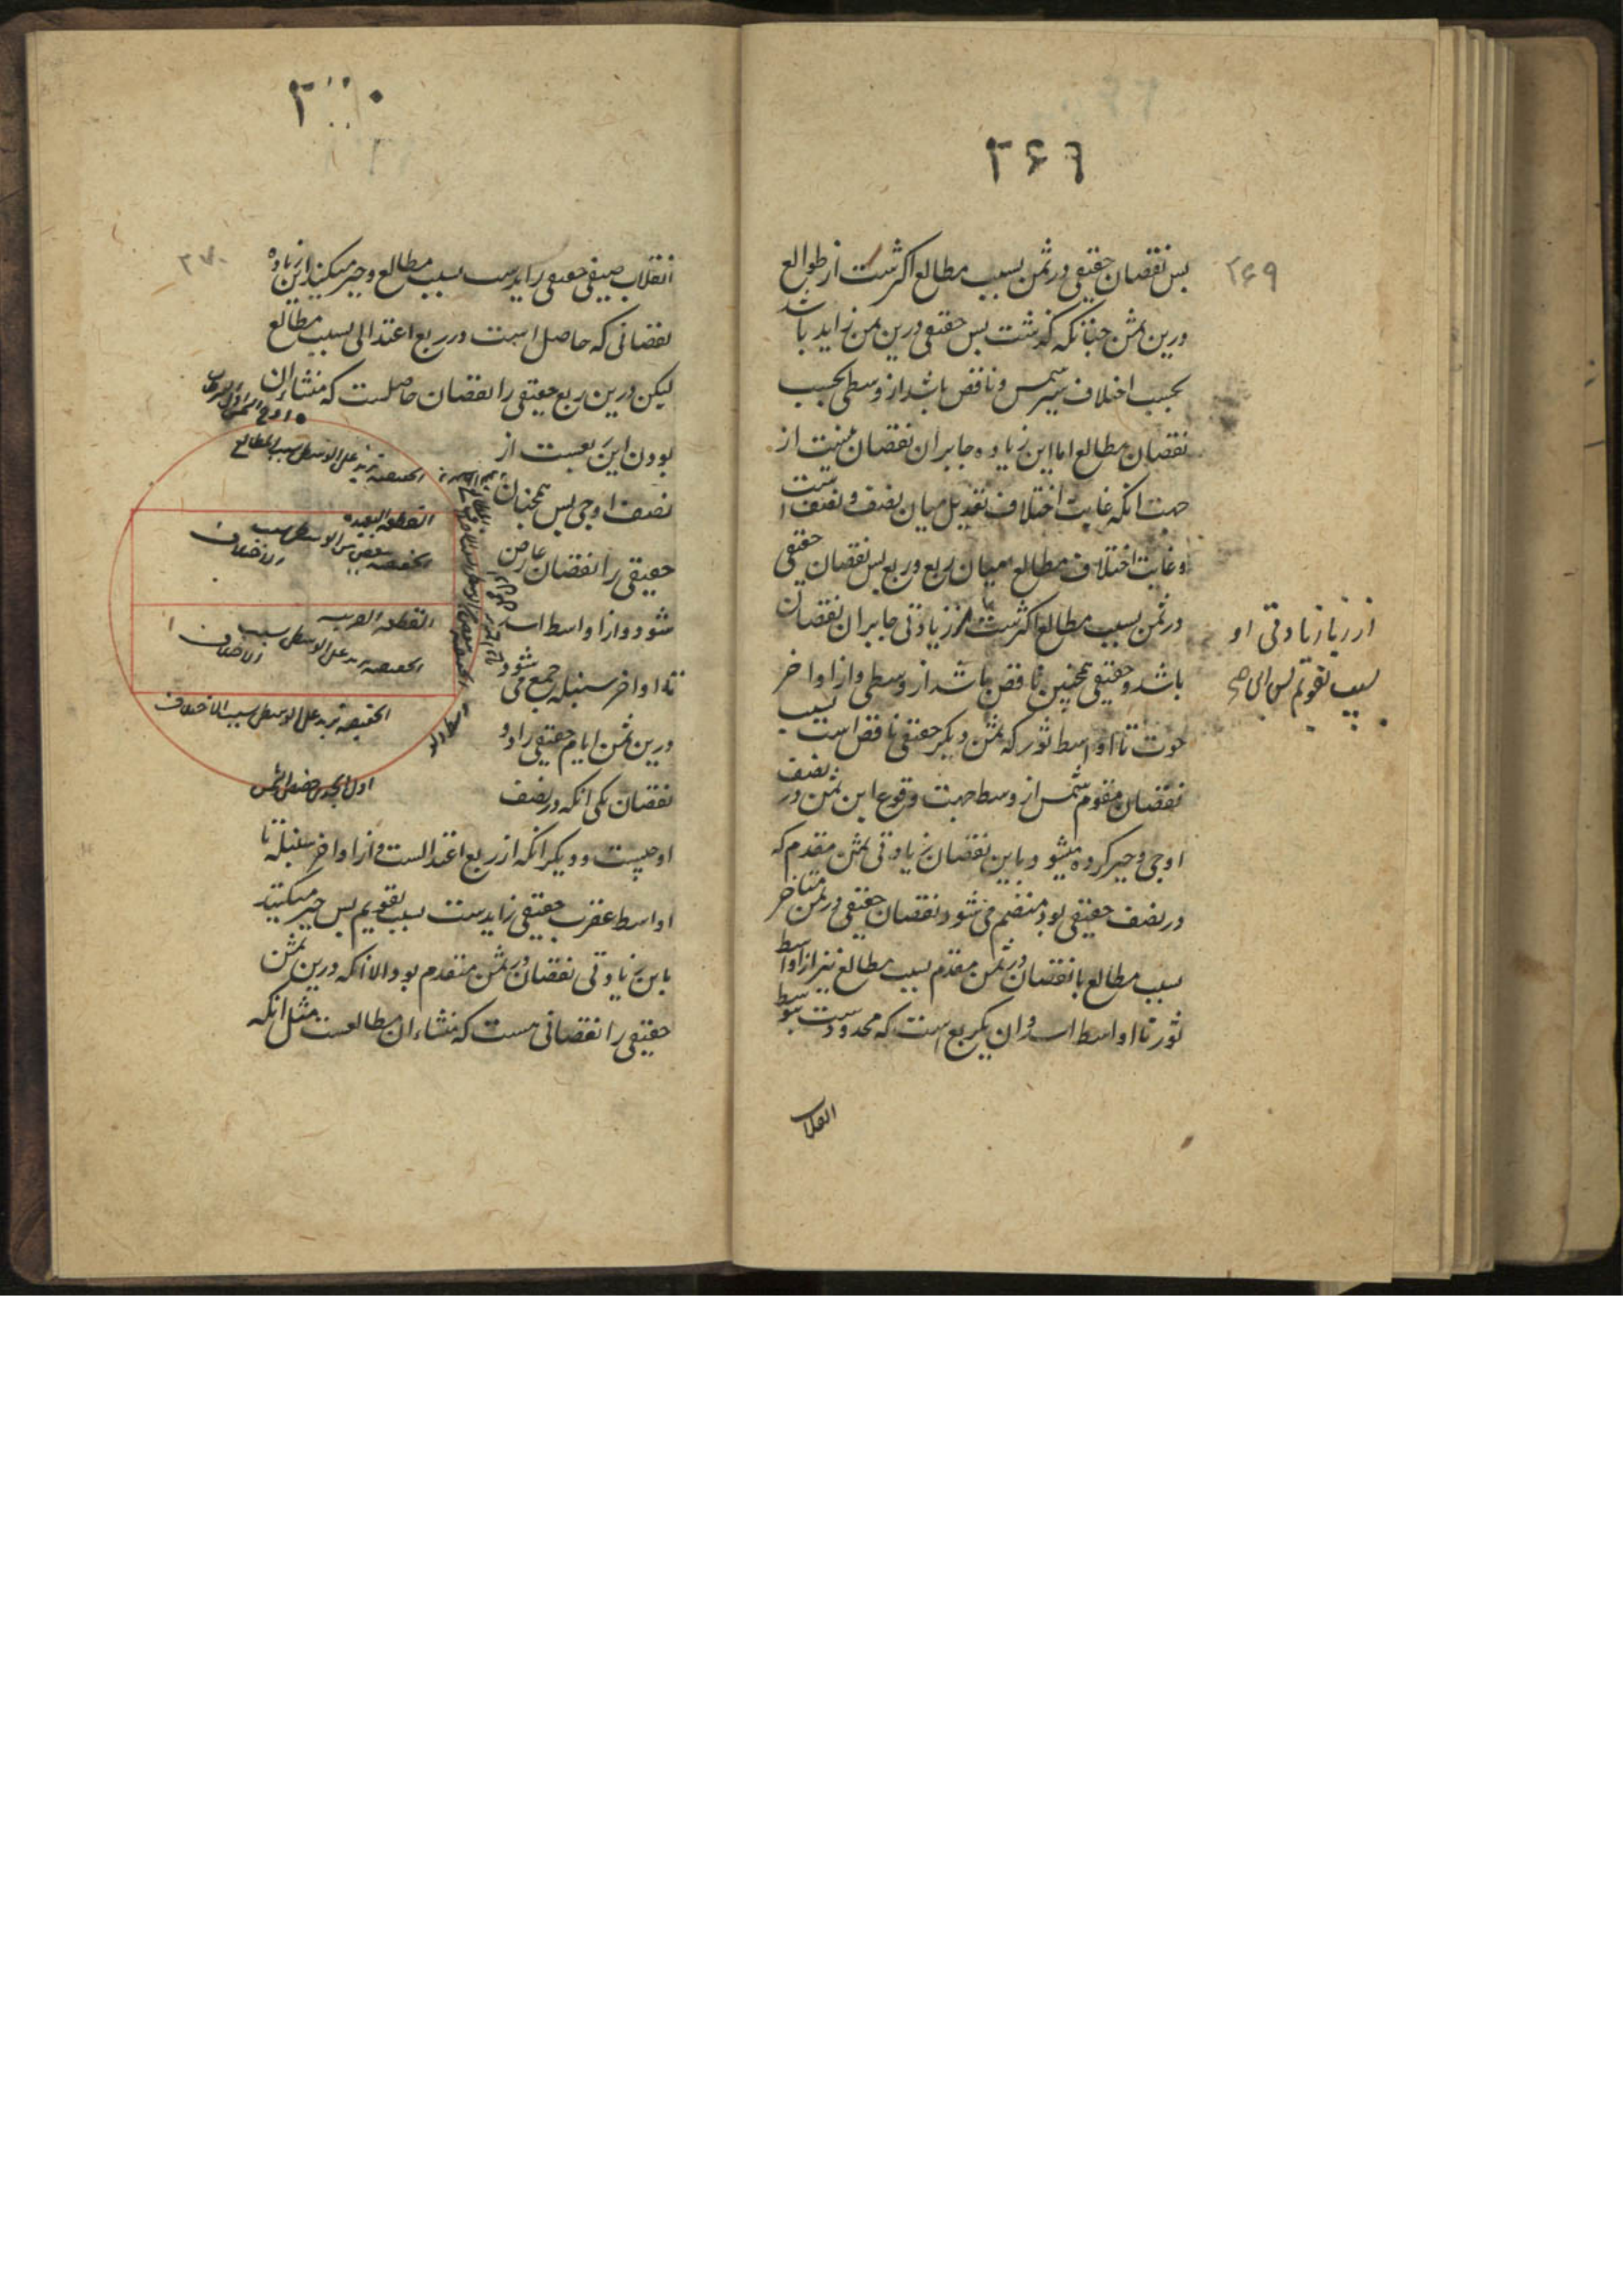 ۳۶۹
۳۶۹
پس نقصان حقیقی در ثمن بسبب مطالع اکثرست از طوالع
درین ثمن چنانکه گذشت پس حقیقی درین ثمن زاید باشد
بحسب اختلاف سیر شمس و ناقص باشد از وسطی بحسب
نقصان مطالع اما این زیاده جابر آن نقصان نیست از
جهت انکه غایت اختلاف تعدیل میان نصف و نصف است
و غایت اختلاف مطالع میان ربع و ربع پس نقصان حقیقی
در ثمن بسبب مطالع اکثرست از زیادتی جابر آن نقصان
باشد و حقیقی همچنین ناقص باشد از وسطی و از اواخر
حوت تا اواسط ثور که ثمن دیگر حقیقی ناقص است بسبب
نقصان مقوم شمس از وسط جهت وقوع این ثمن در نصف
اوجی و جبر کرده میشود باین نقصان زیادتی ثمن مقدم که
در نصف حقیقی بود منضم می شود نقصان حقیقی در ثمن متاخر
بسبب مطالع با نقصان در ثمن مقدم بسبب مطالع نیز از اواسط
ثور تا اواسط اسد و ان یکربع است که محدودست بتوسط
انقلاب
از زیادتی او
بسبب تقویم
۳۰۰
۳۷۰
انقلاب صیفی حقیقی زایدست بسبب مطالع و جبر میکند این زیاده
نقصانی که حاصل است در ربع اعتدالی بسبب مطالع
لیکن درین ربع حقیقی را نقصان حاصلست که منشاء ان
بودن این ربعست از
نصف اوجی پس همچنان
حقیقی را نقصان عارض
شود و از اواسط اسد
تا اواخر سنبله جمع می شود
درین ثمن ایام حقیقی را دو
نقصان یکی انکه در نصف
اوجیست و دیگر انکه از ربع اعتدالست و از اواخر سنبله تا
اواسط عقرب حقیقی زایدست بسبب تقویم پس جبر میکند
باین زیادتی نقصان در ثمن متقدم بود الا انکه درین ثمن
حقیقی را نقصانی هست که منشاء ان مطالعست مثل انکه
الحقیقیه تزید علی الوسطی بسبب المطالع
القطعه البعیده
الحقیقیه تنقص من الوسطی بسبب
الاختلاف
القطعه القریبه
الحقیقیه تزید علی الوسطی بسبب
الاختلاف
الحقیقیه تزید علی الوسطی بسبب الاختلاف
اول الجدی حضیض الشمس